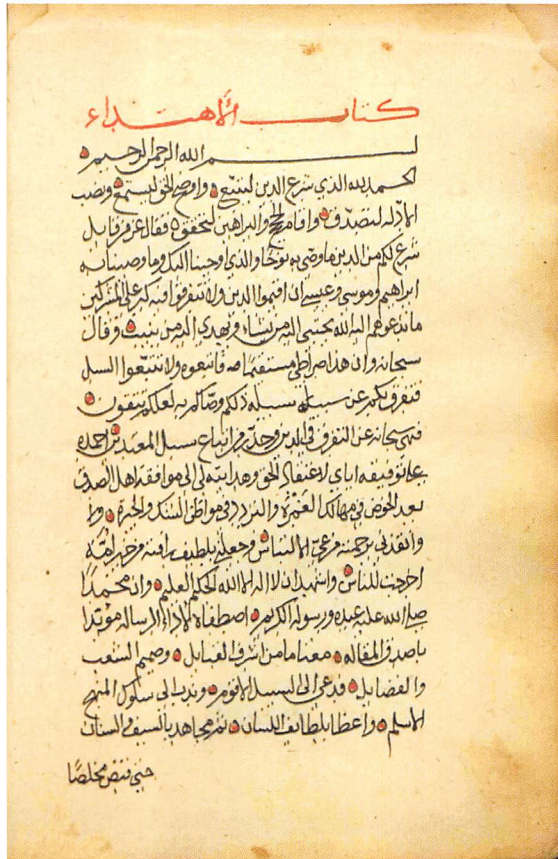 كتاب الاهتداء
بسم الله الرحمن الرحيم
الحمد لله الذي شرع الدين ليتبع واوضح الحق ليستمع ونصب
الادله لتصدق واقام الحجج والبراهين لتحقق فقال عز من قايل
شرع لكم من الدين ما وصى به نوحا والذي اوحينا اليك وما وصينا به
ابراهيم وموسى وعيسى ان اقيموا الدين ولا تتفرقوا فيه كبر على المشركين
ما تدعوهم اليه الله يجتبي اليه من يشاء ويهدي اليه من ينيب وقال
سبحانه وان هذا صراطي مستقيما فاتبعوه ولا تتبعوا السبل
فتفرق بكم عن سبيله ذلكم وصاكم به لعلكم تتقون
فنهى سبحانه عن التفرق في الدين وحذر من اتباع سبيل المعتدين احمده
على توفيقه اياي لاعتقاد الحق وهدايته لي الى موافقة اهل الصدق
بعد الخوض في مهالك الغمرة والتردد في مواطن الشك والحيرة
وانقذني برحمته من الالتباس وجعلني بلطيف رافته من خير امة
اخرجت للناس واشهد ان لا اله الا الله الحكيم العليم وان محمدا
صلى الله عليه عبده ورسوله الكريم اصطفاه لاداء الرساله مؤيدا
باصدق المقاله من اشرف القبايل وصميم الشعب
والفضايل فدعى الى السبيل الاقوم وندب الى سلوك المنهج
الاسلم واعظا بلطايف اللسان ثم مجاهدا بالسيف والسنان
حتى مخلصا